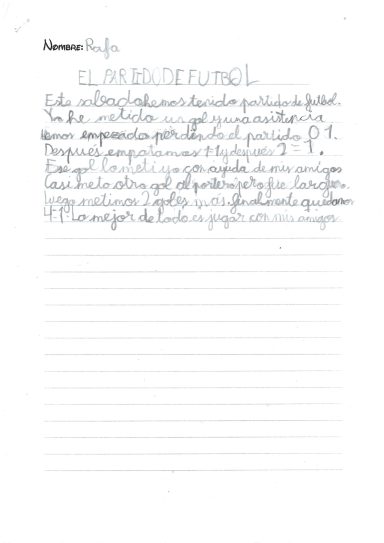 NOMBRE: Rafa
EL PARTIDO DE FUTBOL
Este sabado hemos tenido partido de futbol.
Yo he metido un gol y una asistencia
hemos empezado perdiendo el partido 0 1.
Después empatamos 1-1 y después 2-1.
Ese gol lo metí yo con ayuda de mis amigos
Casi meto otro gol al portero pero fue larguero.
luego metimos 2 goles mas, finalmente quedamos
4-1. Lo mejor de todo es jugar con mis amigos